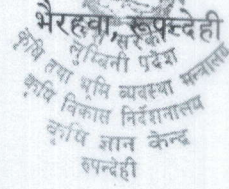 भैरहवा, रूपन्देही
सरकार
लुम्बिनी प्रदेश
कृषि तथा भूमि व्यवस्था मन्त्रालय
कृषि विकास निर्देशनालय
कृषि ज्ञान केन्द्र
रुपन्देही